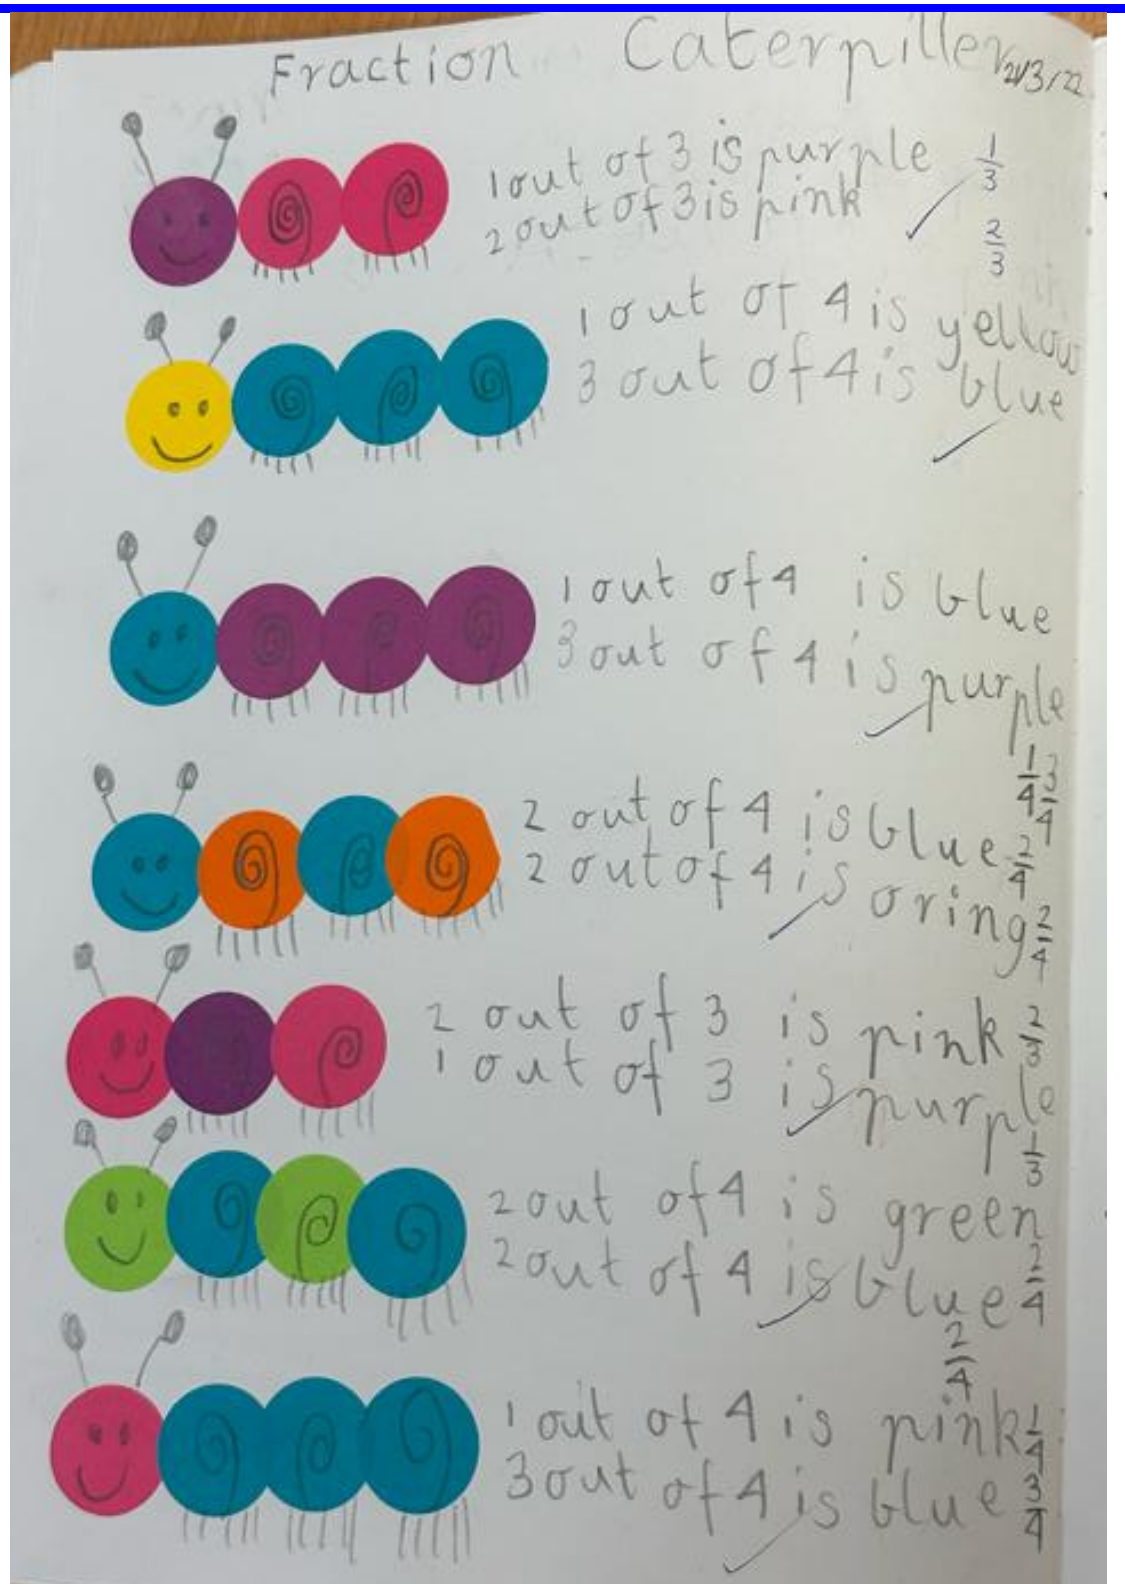 Fraction Caterpiller 21/3/22
1 out of 3 is purple 1/3
2 out of 3 is pink 2/3
1 out of 4 is yellow
3 out of 4 is blue
1 out of 4 is blue
3 out of 4 is purple
1/4 3/4
2 out of 4 is blue 2/4
2 out of 4 is oring 2/4
2 out of 3 is pink 2/3
1 out of 3 is purple
1/3
2 out of 4 is green
2 out of 4 is blue 2/4
2/4
1 out of 4 is pink 1/4
3 out of 4 is blue 3/4